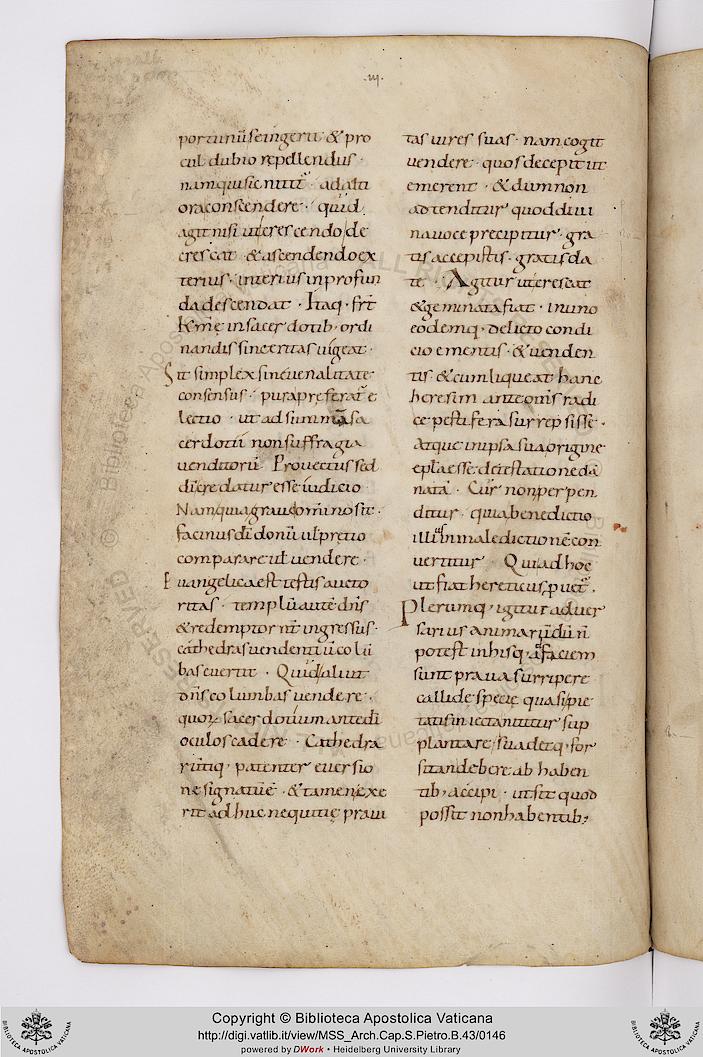 .iii.
portunuseingerit & pro
cul dubio repellendus ·
nam qui sic nititur ad alti
ora conscendere · quid
agit nisi ut crescendo de
crescat · & ascendendo ex
terius · interius in profun
da descendat · Itaq · frt
Kme in sacerdotib · ordi
nandis sinceritas uigeat ·
Sit simplex sine uenalitate
consensus · pura preferat e
lectio · ut ad summa sa
cerdotii non suffragia
uenditorū · Prouectus sed
di credatur esse iudicio
Nam quia graue omnino sit ·
facinus di donū ul pretio
comparare ul uendere ·
Euangelica est testis aucto
ritas · templū autē dns
& redemptor nr ingressus ·
cathedras uendentiū colū
bas euertit · Quid aliut
dns columbas uendere ·
quoꝝ sacerdotium ante di
oculos cadere · Cathedra
rūtiq · patenter euersio
ne signauit · & tamen exe
rit adhuc nequitię praui
tas uires suas · nam cogit
uendere · quos decepit ut
emerent · & dum non
adtenditur quod diui
na uoce precipitur · gra
tis accepistis · gratis da
te · Agitur ut crescat
& geminata fiat · in uno
eodemq · delicto condi
cio ementis · & uenden
tis & cum liqueat hanc
heresim ante omīs radi
ce pestifera surrepsisse ·
atque in ipsa sua origine
eplae esse detestatione dā
nata · Cur non perpen
ditur · quia benedictio
illi in maledictionē con
uertitur · Qui ad hoc
ut fiat hereticus puet ·
Plerumq · igitur aduer
sarius animarū dū n̄
potest in his q · a faciem
sunt praua surripere
callide specię quasi pie
tatis iniectanititur sup
plantare suadetq · for
sitan debere ab haben
tib; accipi · ut sit quod
possit non habentib;
Copyright © Biblioteca Apostolica Vaticana
http://digi.vatlib.it/view/MSS_Arch.Cap.S.Pietro.B.43/0146
powered by DWork • Heidelberg University Library